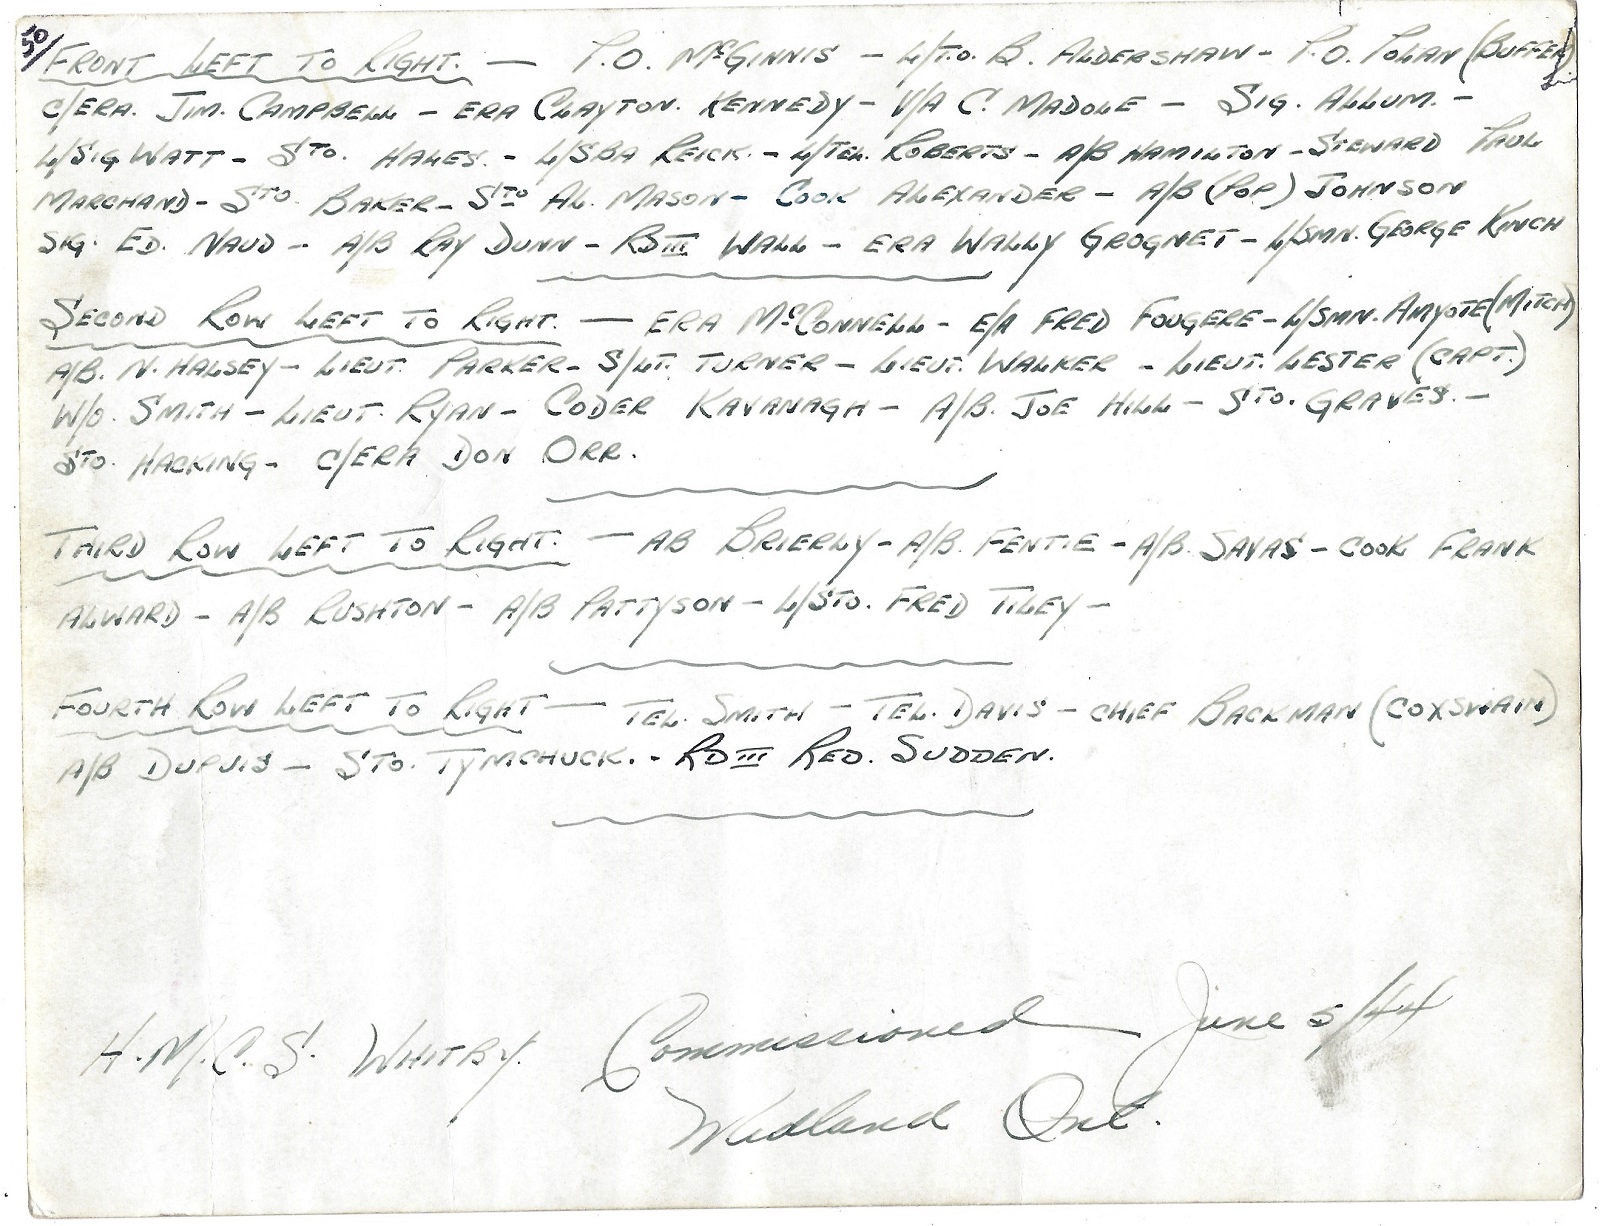 50/
FRONT LEFT TO RIGHT. — P.O. McGINNIS — L/T.O. B. ALDERSHAW - P.O. POLAN (BUFFER)
C/ERA. JIM. CAMPBELL - ERA CLAYTON. KENNEDY - V/A C. MADOLE - SIG. ALLUM. -
L/SIG WATT - STO. HALES. - L/SBA REICK. - L/TEL. ROBERTS - A/B HAMILTON - STEWARD PAUL
MARCHAND - STO. BAKER - STO AL. MASON - COOK ALEXANDER - A/B (POP) JOHNSON
SIG. ED. NAUD - A/B RAY DUNN - RDIII WALL - ERA WALLY GROGNET - L/SMN. GEORGE KINCH
SECOND ROW LEFT TO RIGHT. — ERA McCONNELL - E/A FRED FOUGERE - L/SMN. AMYOTE (MITCH)
A/B. N. HALSEY - LIEUT. PARKER - S/LT. TURNER - LIEUT. WALKER - LIEUT. LESTER (CAPT.)
W/O. SMITH - LIEUT. RYAN - CODER KAVANAGH - A/B. JOE HILL - STO. GRAVES. -
STO. HACKING - C/ERA DON ORR.
THIRD ROW LEFT TO RIGHT. — AB BRIERLY - A/B. FENTIE - A/B. SAVAS - COOK FRANK
ALWARD - A/B RUSHTON - A/B PATTYSON - L/STO. FRED TILEY -
FOURTH ROW LEFT TO RIGHT — TEL. SMITH - TEL. DAVIS - CHIEF BACKMAN (COXSWAIN)
A/B DUPUIS - STO. TYMCHUCK. - RDIII RED. SUDDEN.
H.M.C.S. WHITBY. Commissioned June 5/44
Midland Ont.